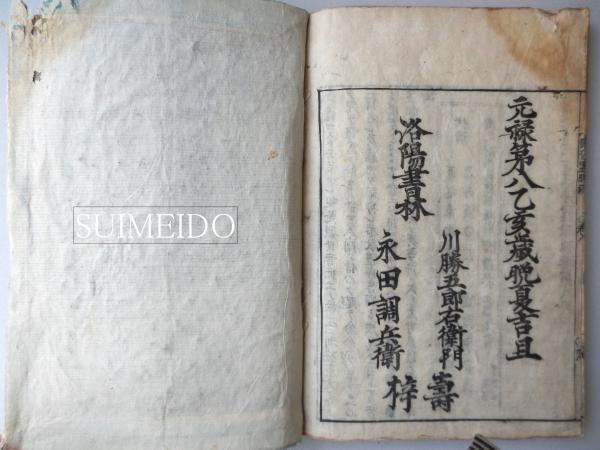 元禄第八乙亥歳晩夏吉旦
川勝五郎右衛門
洛陽書林
永田調兵衛
壽梓
SUIMEIDO